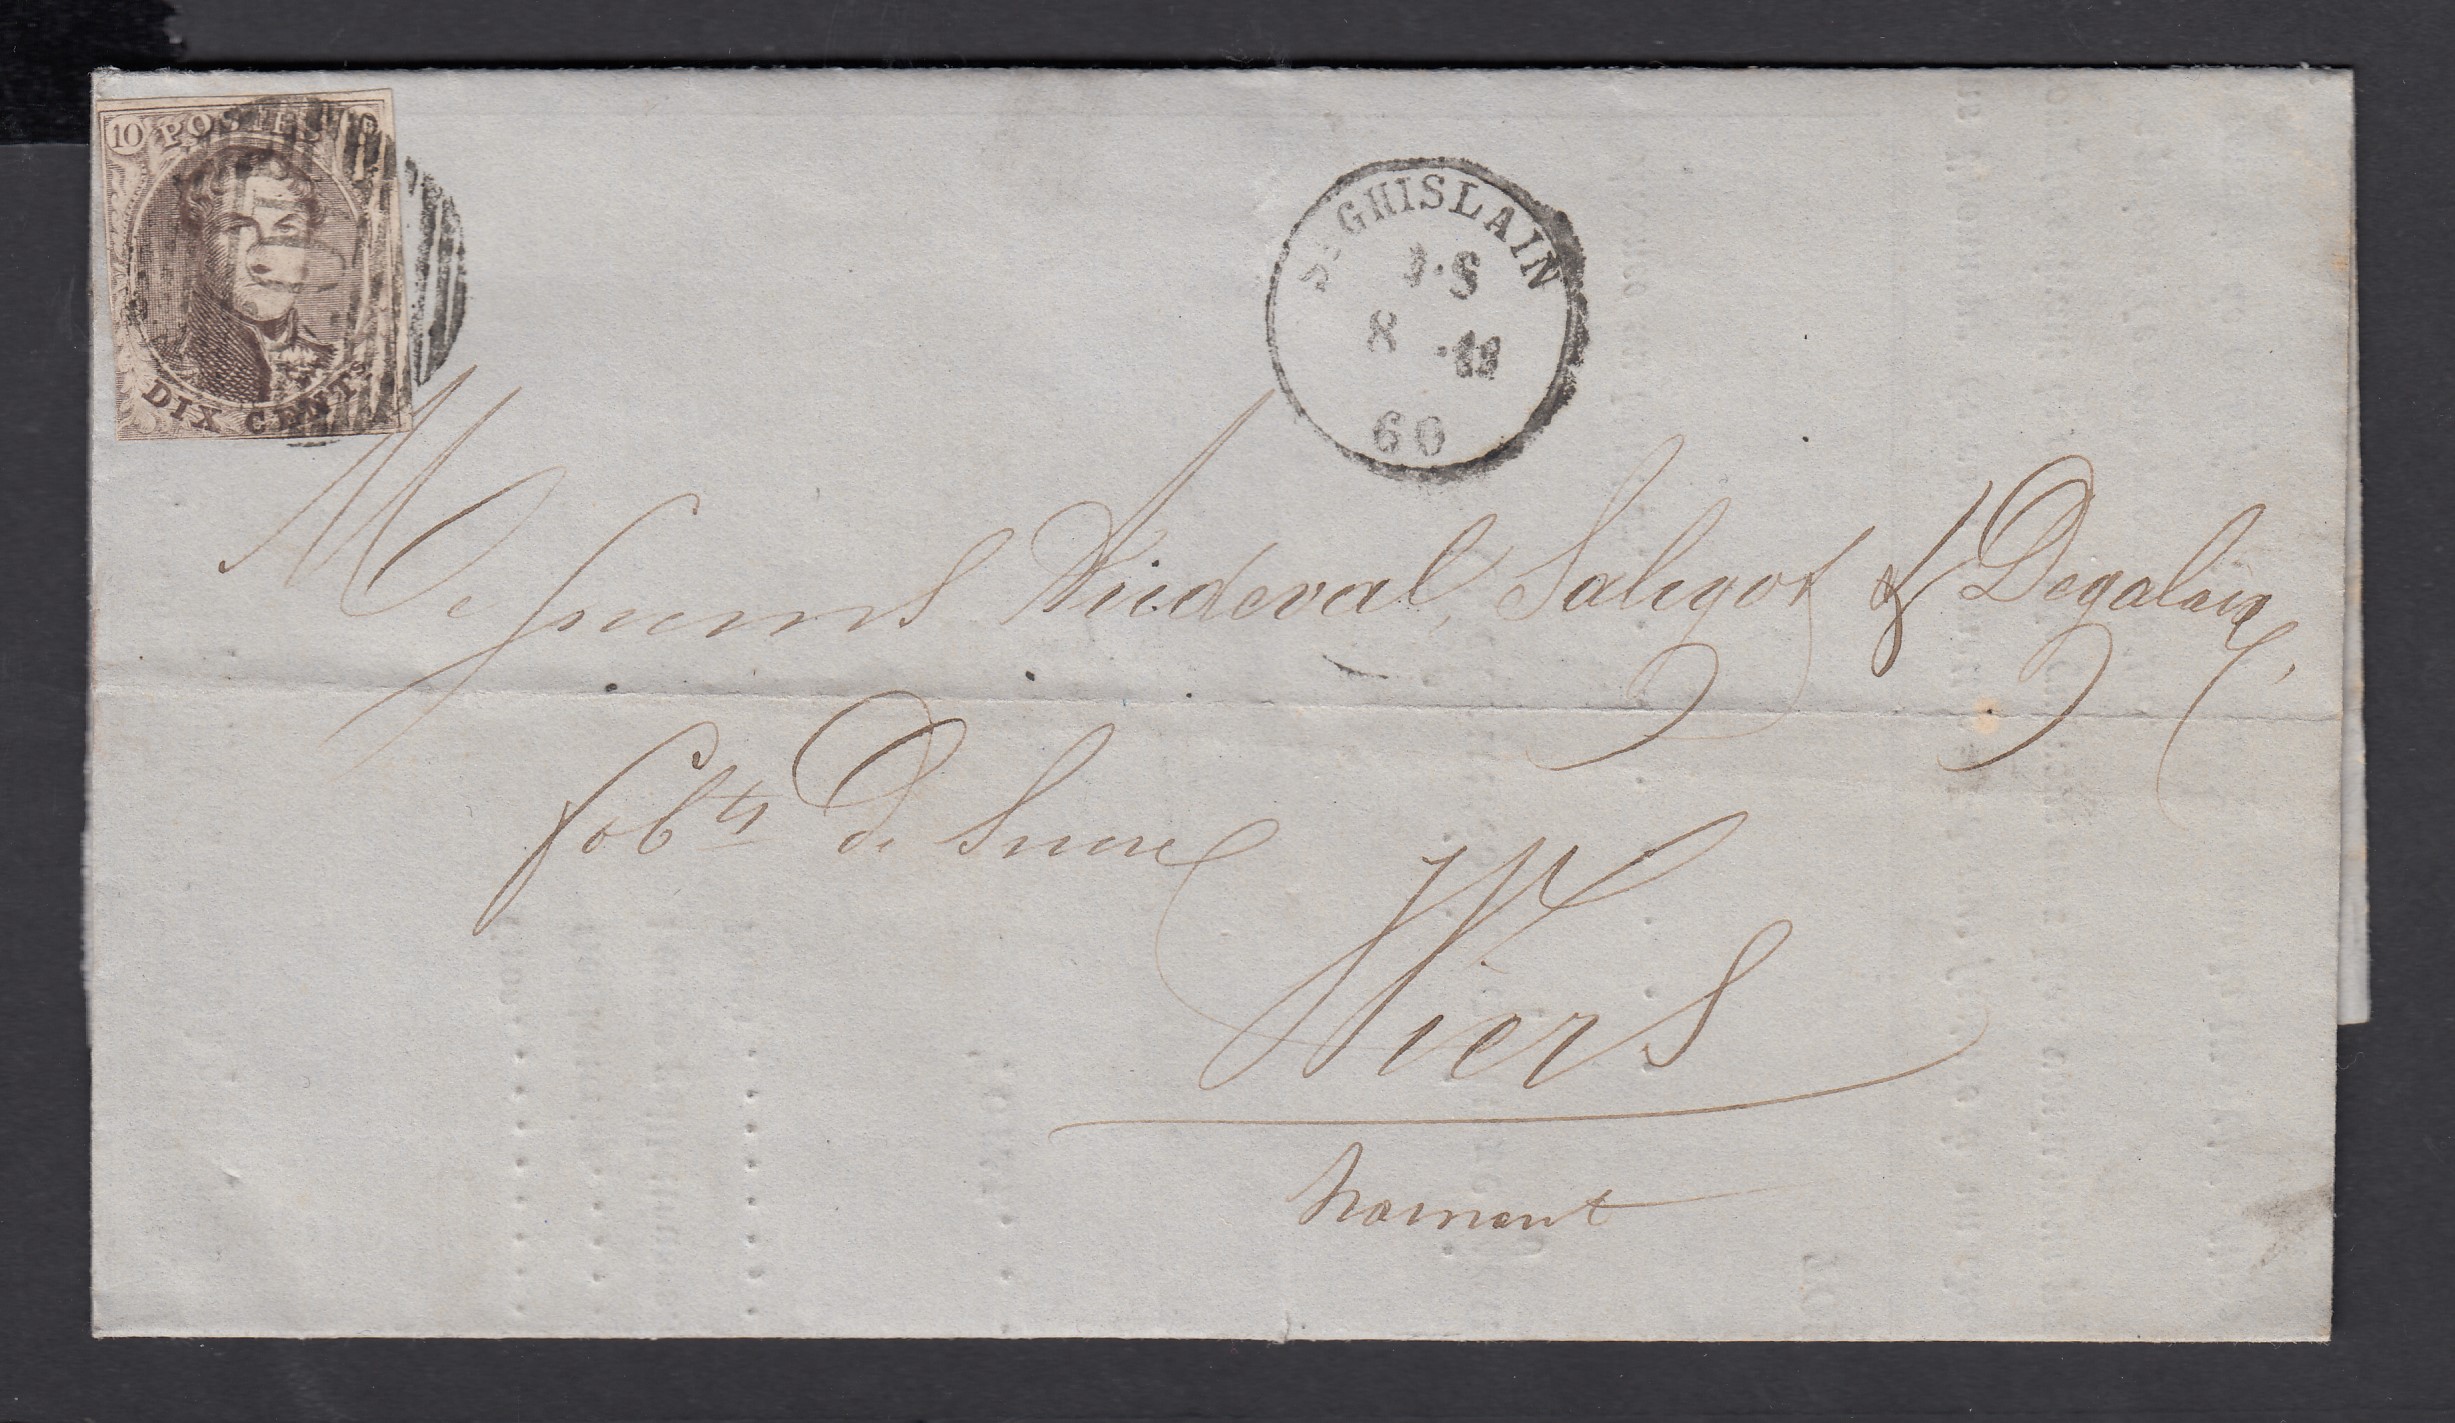 10 POSTES
DIX CENTS.
ST GHISLAIN
8
60
Messieurs Viedeval, Saligot & Degalaix,
fabts de Sucre
Wiers
hornant